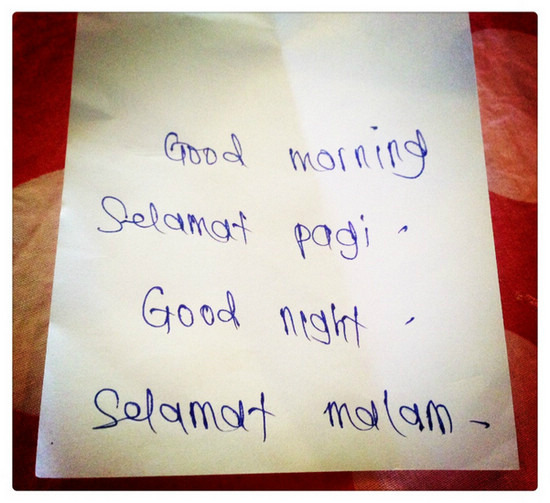 Good morning
Selamat pagi.
Good night.
Selamat malam.